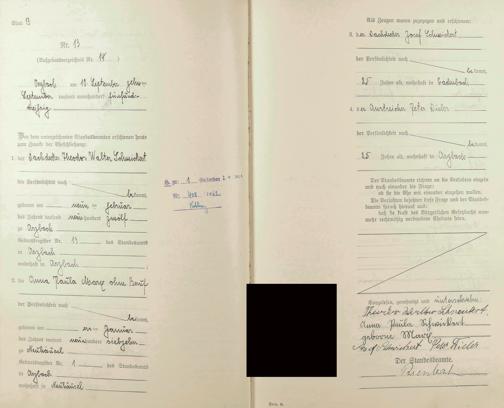 Blatt B
Nr. 13
(Aufgebotsverzeichnis Nr. 18)
Arzbach am 18. September
September tausend neunhundert fünfund-
dreißig
Vor dem unterzeichneten Standesbeamten erschienen heute
zum Zwecke der Eheschließung:
1. der Dachdecker Theodor Walter Schweickert
die Persönlichkeit nach
kannt,
geboren am neun ten Februar
des Jahres tausend neunhundert zwölf
zu Arzbach
Geburtsregister Nr. 13 des Standesamts
in Arzbach
wohnhaft in Arzbach
2. die Anna Paula Marx ohne Beruf
der Persönlichkeit nach
kannt,
geboren am ersten Januar
des Jahres tausend neunhundert siebzehn
zu Neuhäusel
Geburtsregister Nr. 1 des Standesamts
in Arzbach
wohnhaft in Neuhäusel
Als Zeugen waren zugezogen und erschienen:
3. der Dachdecker Josef Schweickert
der Persönlichkeit nach
kannt,
25 Jahre alt, wohnhaft in Kadenbach
4. der Anstreicher Peter
der Persönlichkeit nach
kannt,
25 Jahre alt, wohnhaft in Arzbach
Der Standesbeamte richtete an die Verlobten einzeln
und nach einander die Frage:
ob sie die Ehe mit einander eingehen wollen.
Die Verlobten bejahten diese Frage und der Standes-
beamte sprach hierauf aus,
daß sie kraft des Bürgerlichen Gesetzbuchs nun-
mehr rechtmäßig verbundene Eheleute seien.
Vorgelesen, genehmigt und unterschrieben
Theodor Walter Schweickert
Anna Paula Schweickert
geborene Marx
Josef Schweickert Peter
Der Standesbeamte.